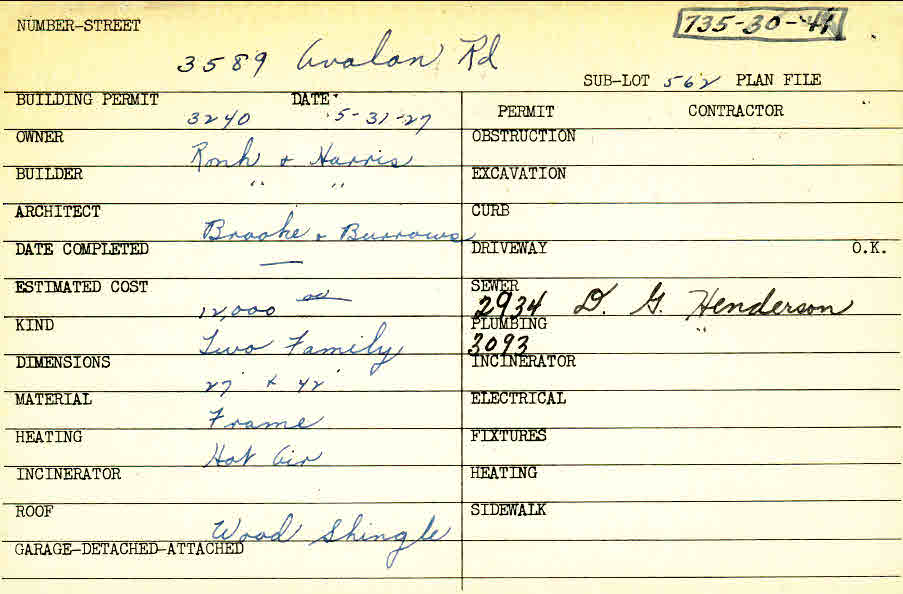 NUMBER-STREET 735-30-41
3589 Avalon Rd
SUB-LOT 562 PLAN FILE
BUILDING PERMIT 3240 DATE 5-31-27
OWNER Ronk & Harris
BUILDER " "
ARCHITECT Brooke & Burrows
DATE COMPLETED —
ESTIMATED COST 12,000 00
KIND Two Family
DIMENSIONS 27' x 42'
MATERIAL Frame
HEATING Hot Air
INCINERATOR
ROOF Wood Shingle
GARAGE-DETACHED-ATTACHED
PERMIT CONTRACTOR
OBSTRUCTION
EXCAVATION
CURB
DRIVEWAY O.K.
SEWER 2934 D. G. Henderson
PLUMBING 3093 "
INCINERATOR
ELECTRICAL
FIXTURES
HEATING
SIDEWALK